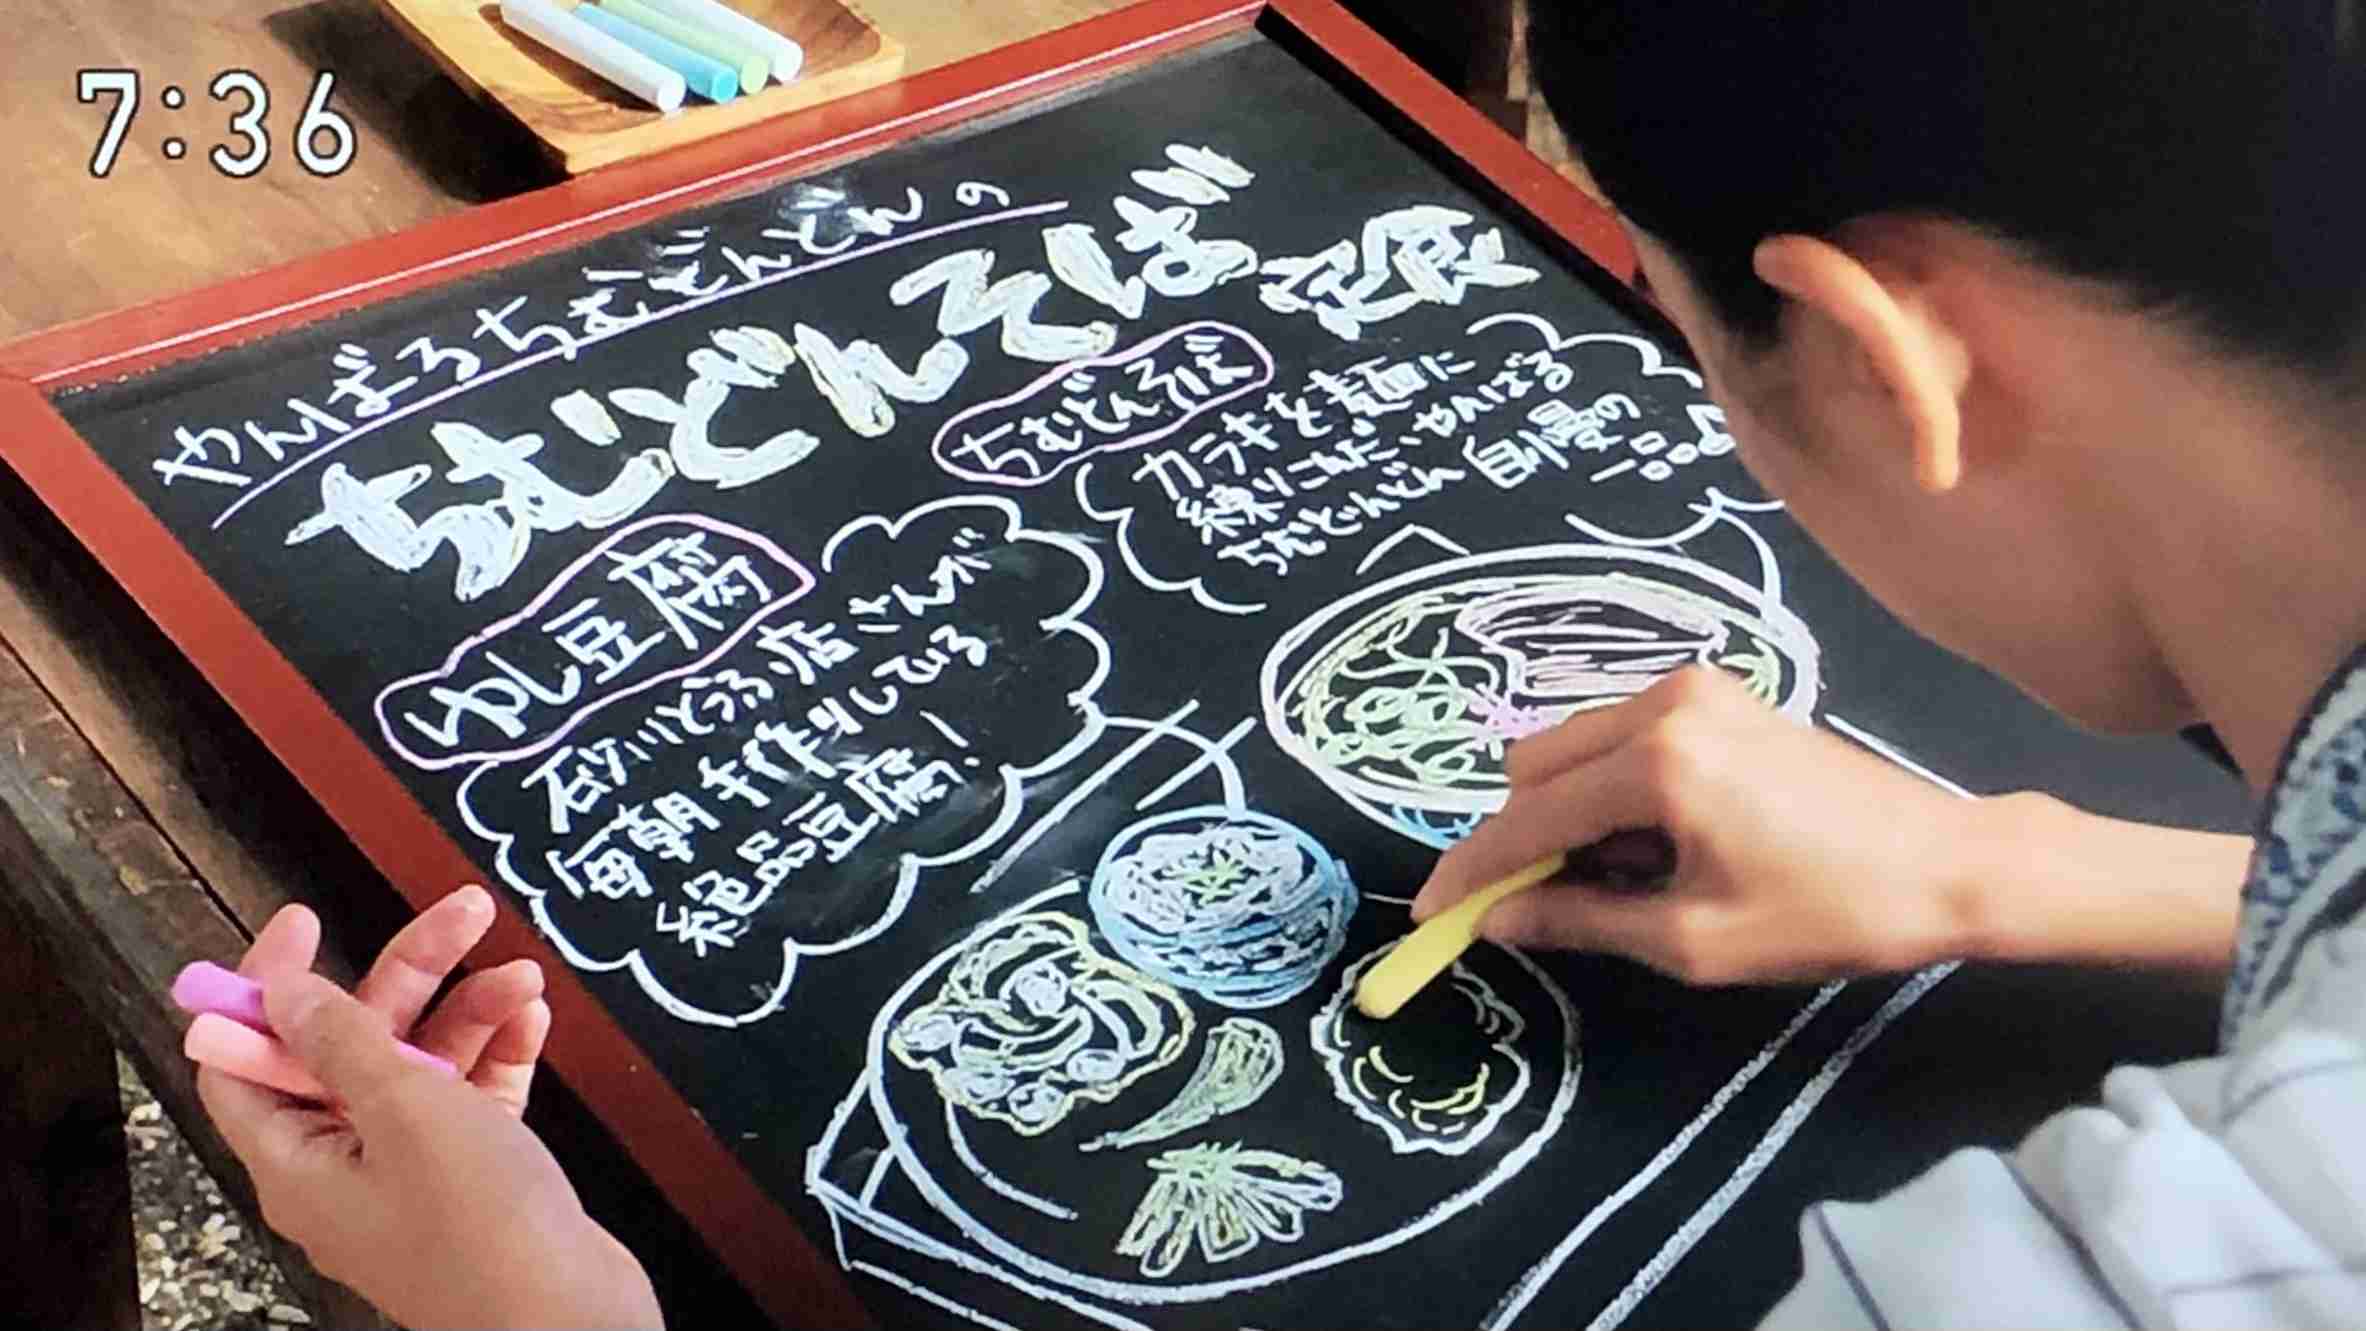 7:36
やんばるちむどんどんの
ちむどんそば定食
ちむどんそば
カラキを麺に
練りこんだ、やんばる
ちむどんどん自慢の
ゆし豆腐
砂川とうふ店さんが
毎朝手作りしている
絶品豆腐!